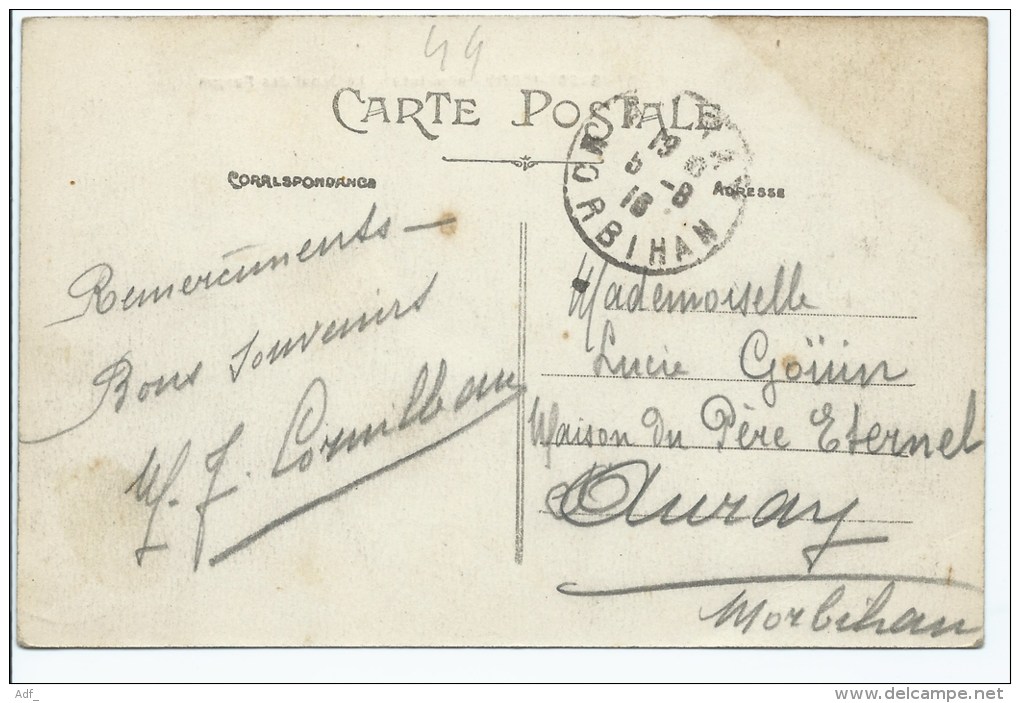 44
CARTE POSTALE
CORRESPONDANCE
ADRESSE
19
5 -8
16
MORBIHAN
Remerciements —
Bons Souvenirs
M. J. Cornilleau
Mademoiselle
Lucie Goüin
Maison du Père Eternel
Auray
Morbihan
Adf_
http://www.delcampe.net